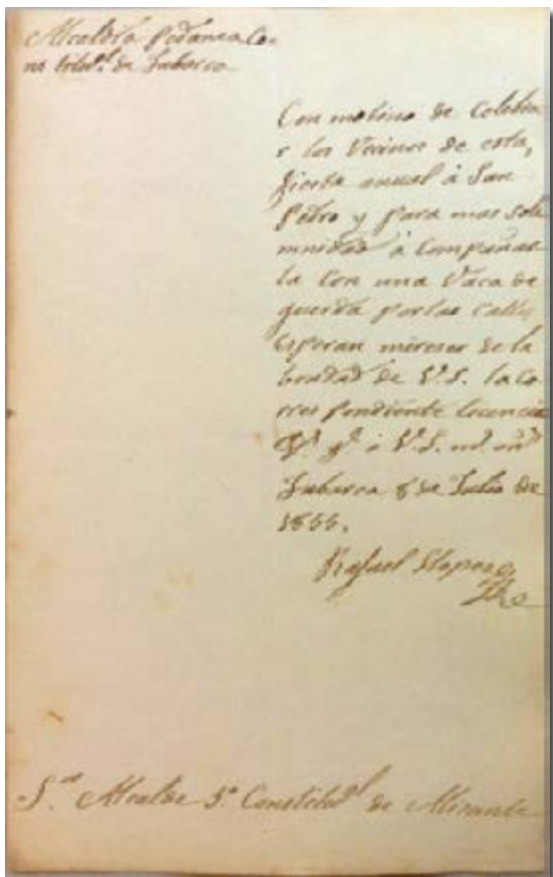 Alcaldía Pedanea Co-
nstitu.l de Tabarca
Con motivo de Celebra
r los Vecinos de esta,
fiesta anual á San
Pedro y para mas Sole
mnidad á Compañar
la Con una Vaca de
querda por las Calles
Esperan mereser de la
bondad de V.S. la co
rres pondiente licencia
D.s g.e á V.S. m.s an.s
Tabarca 8 de Julio de
1866.
Rafael
S.or Alcalde 1.o Constitu.l de Alicante